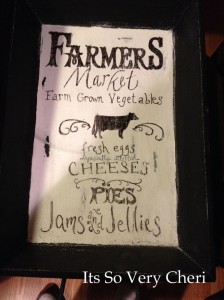 FARMERS
Market
Farm Grown Vegetables
fresh eggs
CHEESES
PIES
Jams and Jellies
Its So Very Cheri